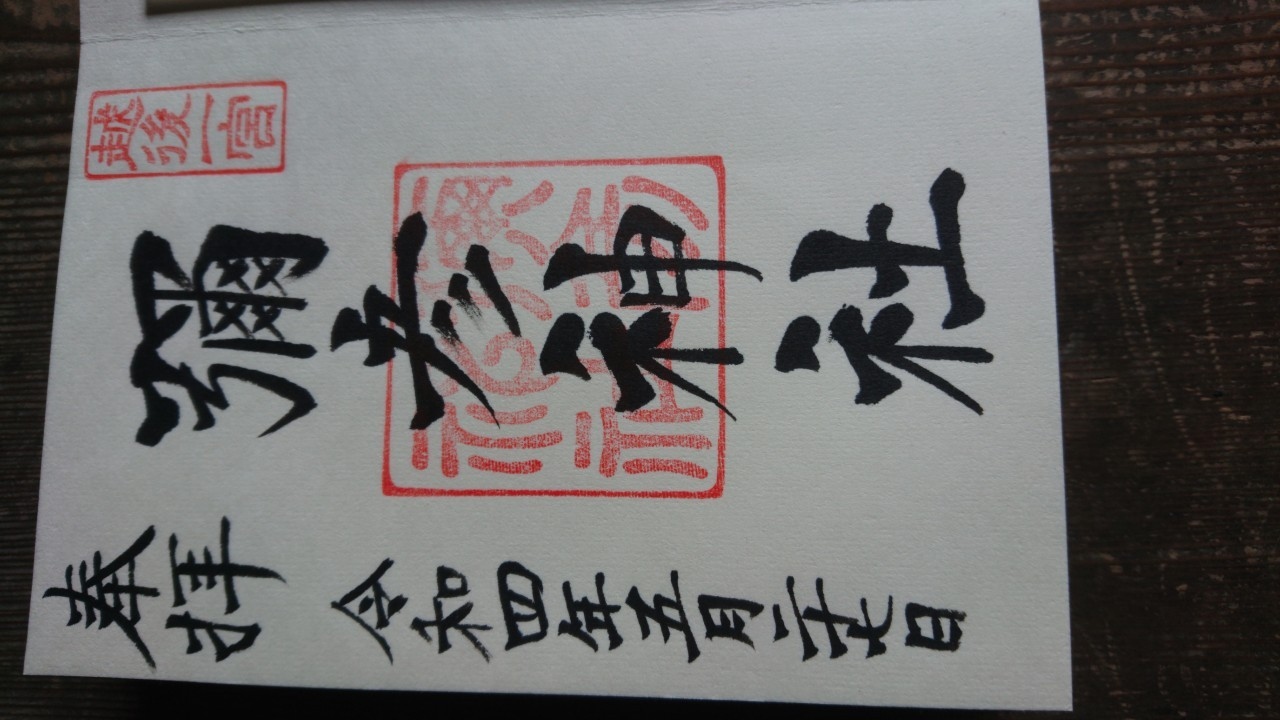 越後一宮
彌彦神社
奉拝 令和四年五月二十七日